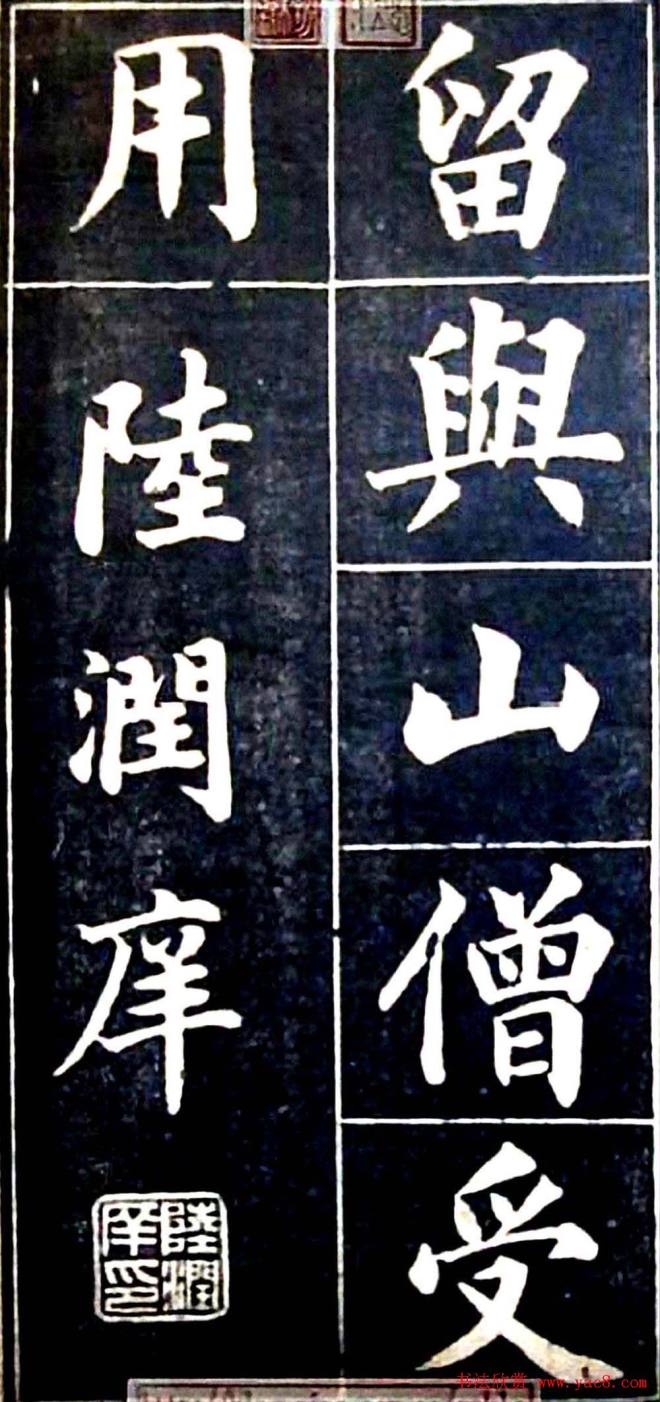 留與山僧受
用陸潤庠
陸潤
庠印
书法欣赏 www.yac8.com